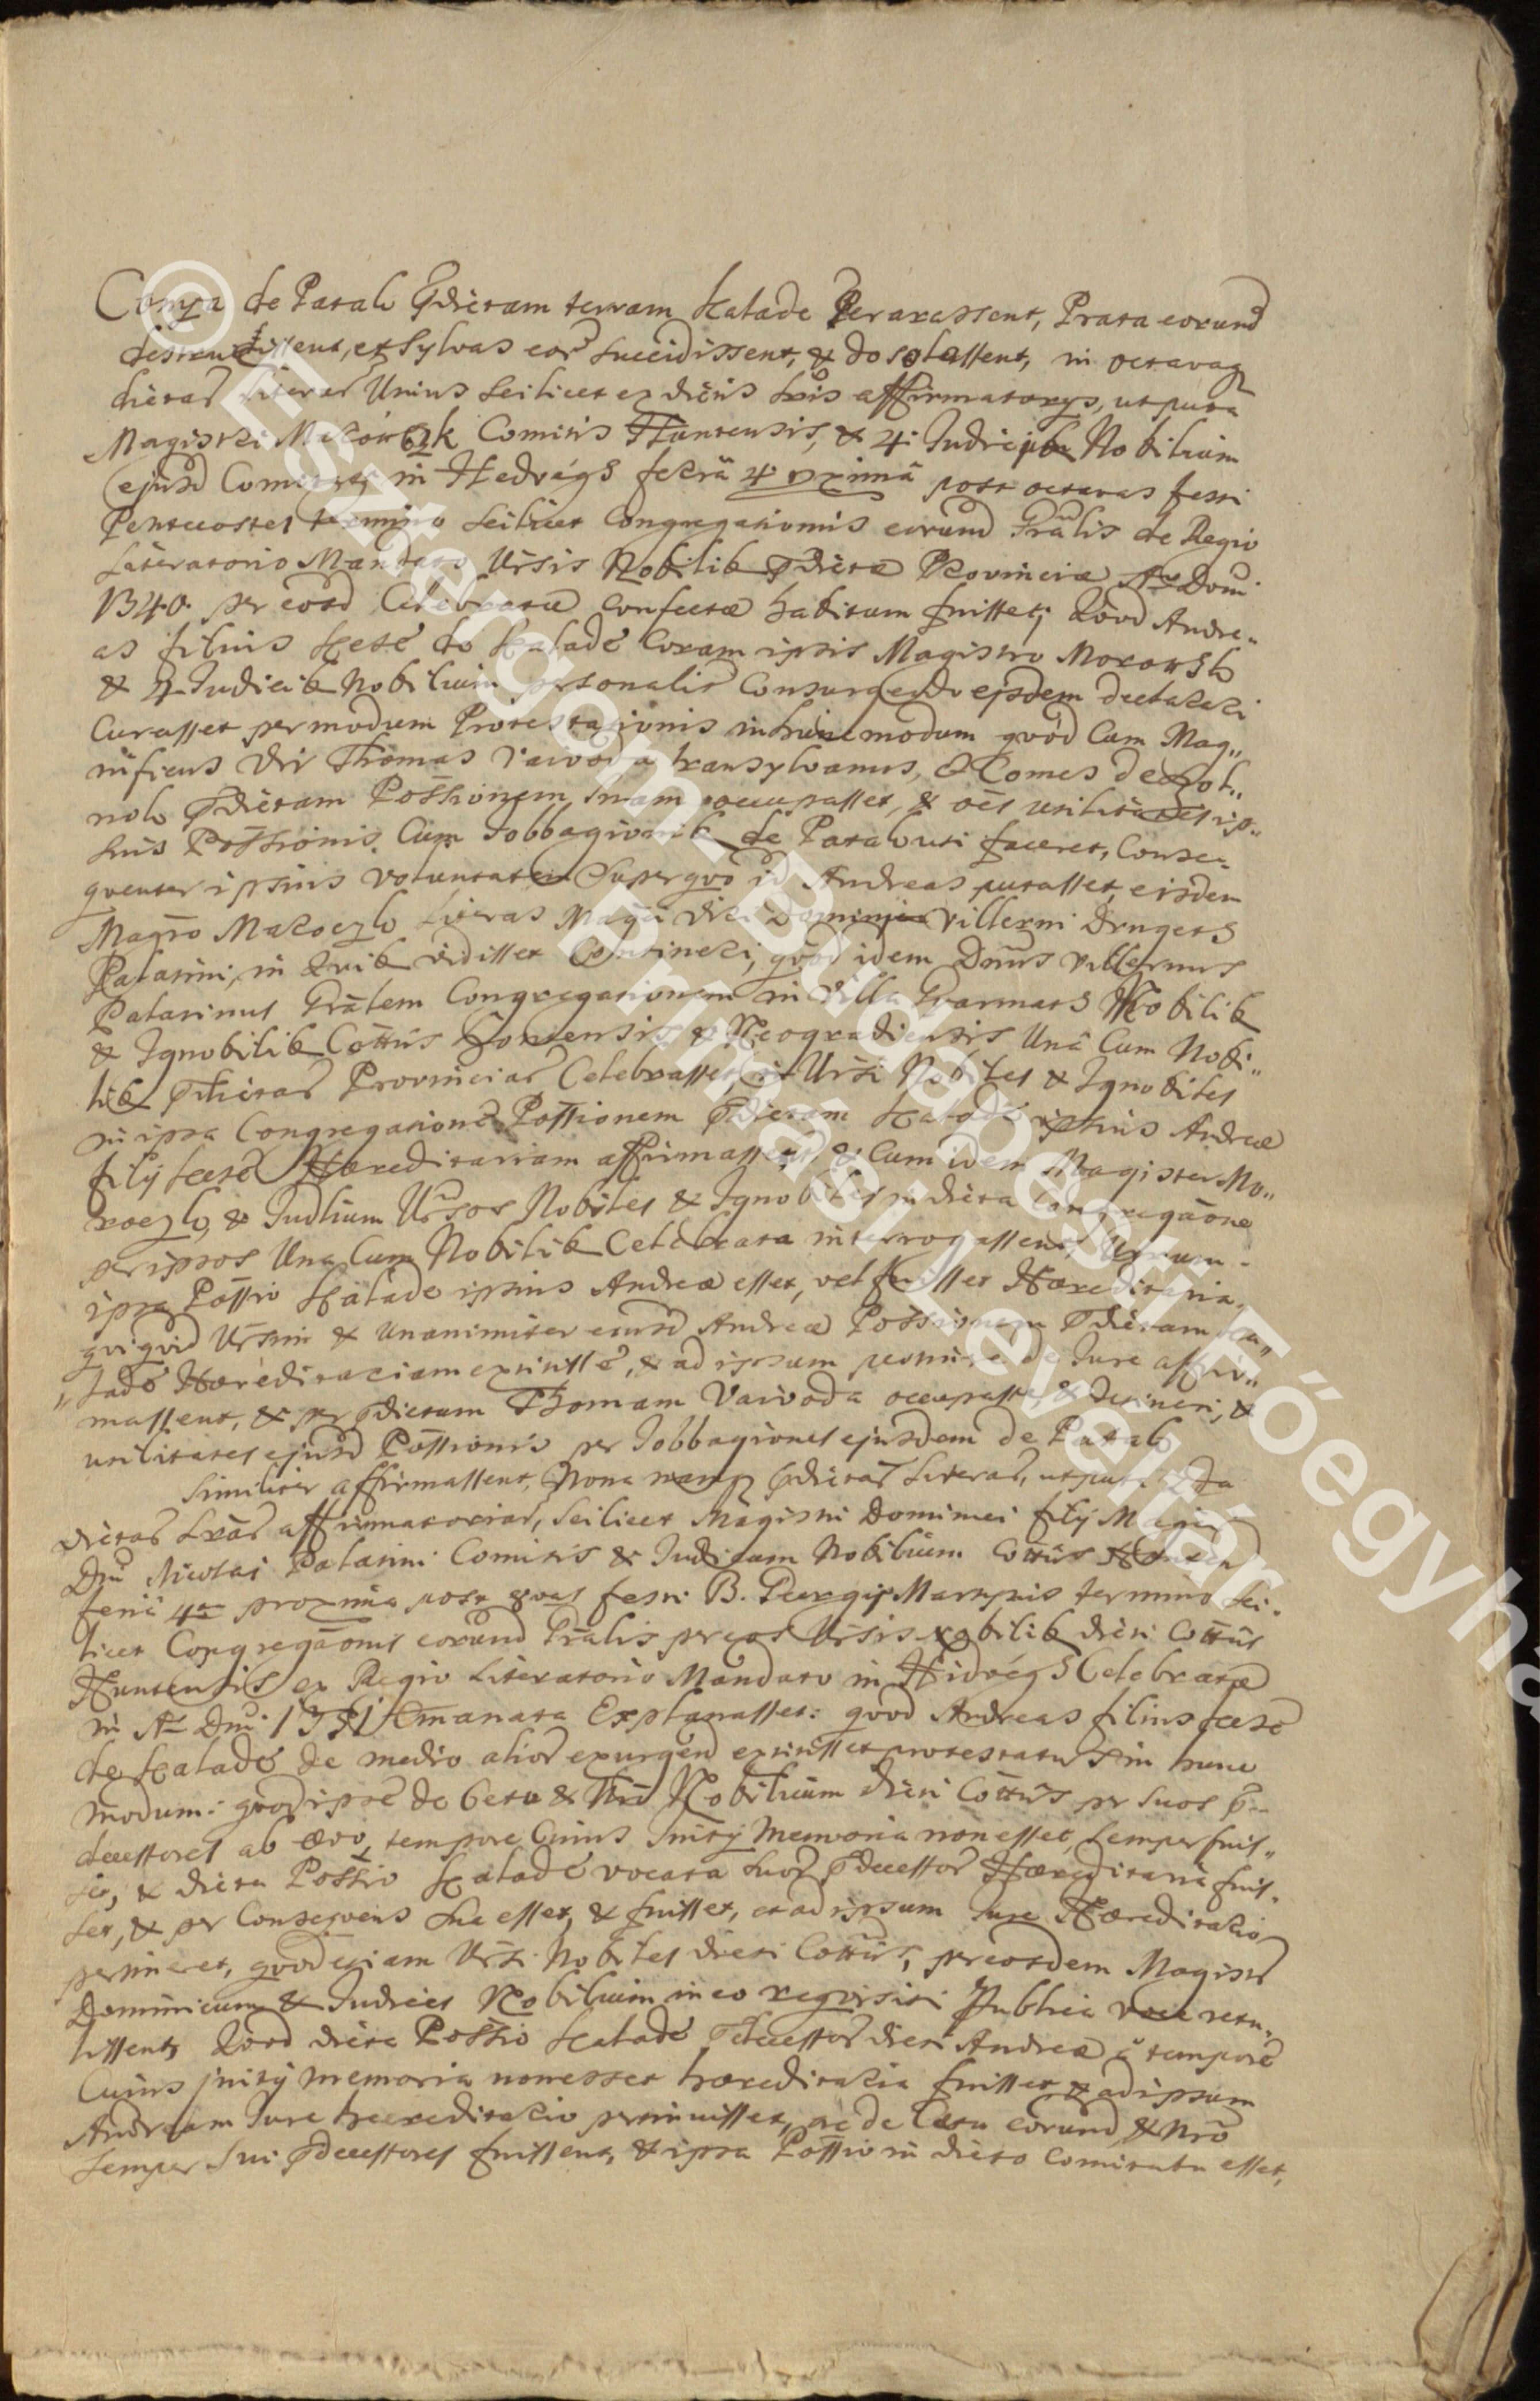 Conya de Patak pdictam terram Kalade Perarassent, Prata eorund
destruxissent, et Sylvas eor Succidissent, & desolassent, in octavaq
dictar Literar Unius Scilicet ex dictis Lris affirmatorys, utputa
Magistri Makowczk Comitis Huntensis, & 4. Judicib Nobilium
ejusd Comitatus in Hedvégh feria 4 proxima post octavas festi
Pentecostes termino Scilicet Congregationis eorund Gralis de Regio
Literatorio Mandato Ursis Nobilib pdictæ Provinciæ Ao Domi
1340 per eosd Celebratæ confectæ habitum fuisset; Quod Andre„
as filius Kete de Kalade Coram ipsis Magistro Morowsko
& 4 Judicib Nobilium personalit Consurgendo ejsdem declarari
Curasset per modum Protestationis in hunc modum quod Cum Mag„
nificus Vir Thomas Vaivoda transylvanus, & Comes de Zol„
nok pdictam Possionem Suam occupasset, & oēs utilitates ip„
sius Possionis Cum Jobbagionib de Patak uti faceret, Conse„
quenter ipsius voluntatem Super quo id Andreas putasset, eisdem
Magro Makoczko Literas Magci Viri Domini Villermi Drugeth
Palatini, in quib vidisset Contineri, quod idem Dnus Villermus
Palatinus Gralem Congregationem in Villa Gyarmath Nobilib
& Ignobilib Cottus Hontensis, & Neogradiensis Una Cum Nobi„
lib pdictar Provinciar Celebrasset, & Ursi Nobiles & Ignobiles
in ipsa Congregatione Possionem pdictam Kalade ipsius Andreæ
fily Kete Hæreditariam affirmassent, & Cum idem Magister Mo„
roczko & Judlium Ursos Nobiles & Ignobiles in dicta Congregaone
per ipsos Una Cum Nobilib Celebrata interrogassent, Utrum
ipsa Possio Kalade ipsius Andreæ esset, vel fuisset Hæreditaria,
qui quid Ursim & Unanimiter eiusd Andreæ Possionem pdictam Ka„
„lade Hæreditariam extitisse, & ad ipsum pertinere de Jure affir„
massent, & per pdictum Thomam Vaivoda occupasse, & detineri, &
utilitates ejusd Possionis per Jobbagiones ejusdem de Patak
Similiter affirmassent, Nona namq pdictar Literar, utputa
dictar Lrar affirmatoriar, Scilicet Magistri Dominici fily Magci
Dni Nicolai Palatini Comitis & Judicum Nobilium Cottus Honten
feria 4ta proxima post 8vas festi B. Georgij Martyris termino Sci„
licet Congregaonis eorund Gralis per eos Ursis Nobilib dicti Cottus
Huntensis ex Regio Literatorio Mandato in Hidvégh Celebratæ
in Ao Dni 1351 Emanata Explanasset: quod Andreas filius Kete
de Kalade de medio alior exurgend extitisset protestatus in hunc
modum: quod ipse de Cetu & Nro Nobilium dicti Cottus per Suos p„
decessores ab ævo, tempore Cuius Inity Memoria non esset, Semper fuis„
set, & dicta Possio Kalade vocata Suor pdecessor Hæreditaria fuis„
set, & per Consequens Sua esset, & fuisset, et ad ipsum Jure Hæreditario
pertineret, quod etiam Ursi Nobiles dicti Cottus, per eosdem Magistr
Dominicum & Judices Nobilium in eo requisiti Publica voce retu„
lissent, Quod dicta Possio Kalade pdecessor dicti Andreæ a tempore
Cuius inity memoria non esset hæreditaria fuisset, & ad ipsum
Andream Jure hæreditario pertinuisset, ac de Cætu eorund, & Nro
Semper Sui pdecessores fuissent, & ipsa Possio in dicto Comitatu esset,
© Esztergom-Budapesti Főegyház
Prímási Levéltár